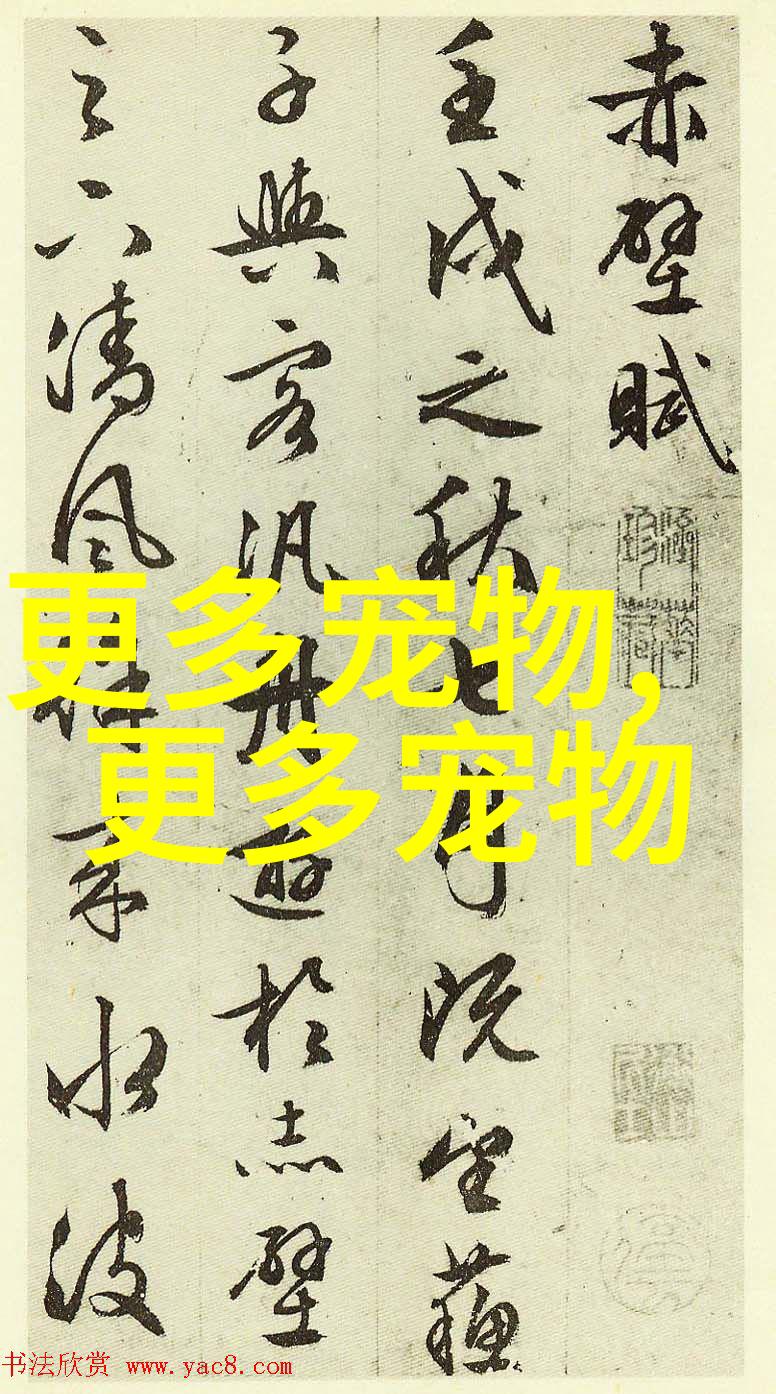 赤壁賦
壬戌之秋七月既望蘇
子與客汎舟遊於赤壁
之下清風徐來水波
更多宠物,
更多宠物
书法欣赏 www.yac8.com